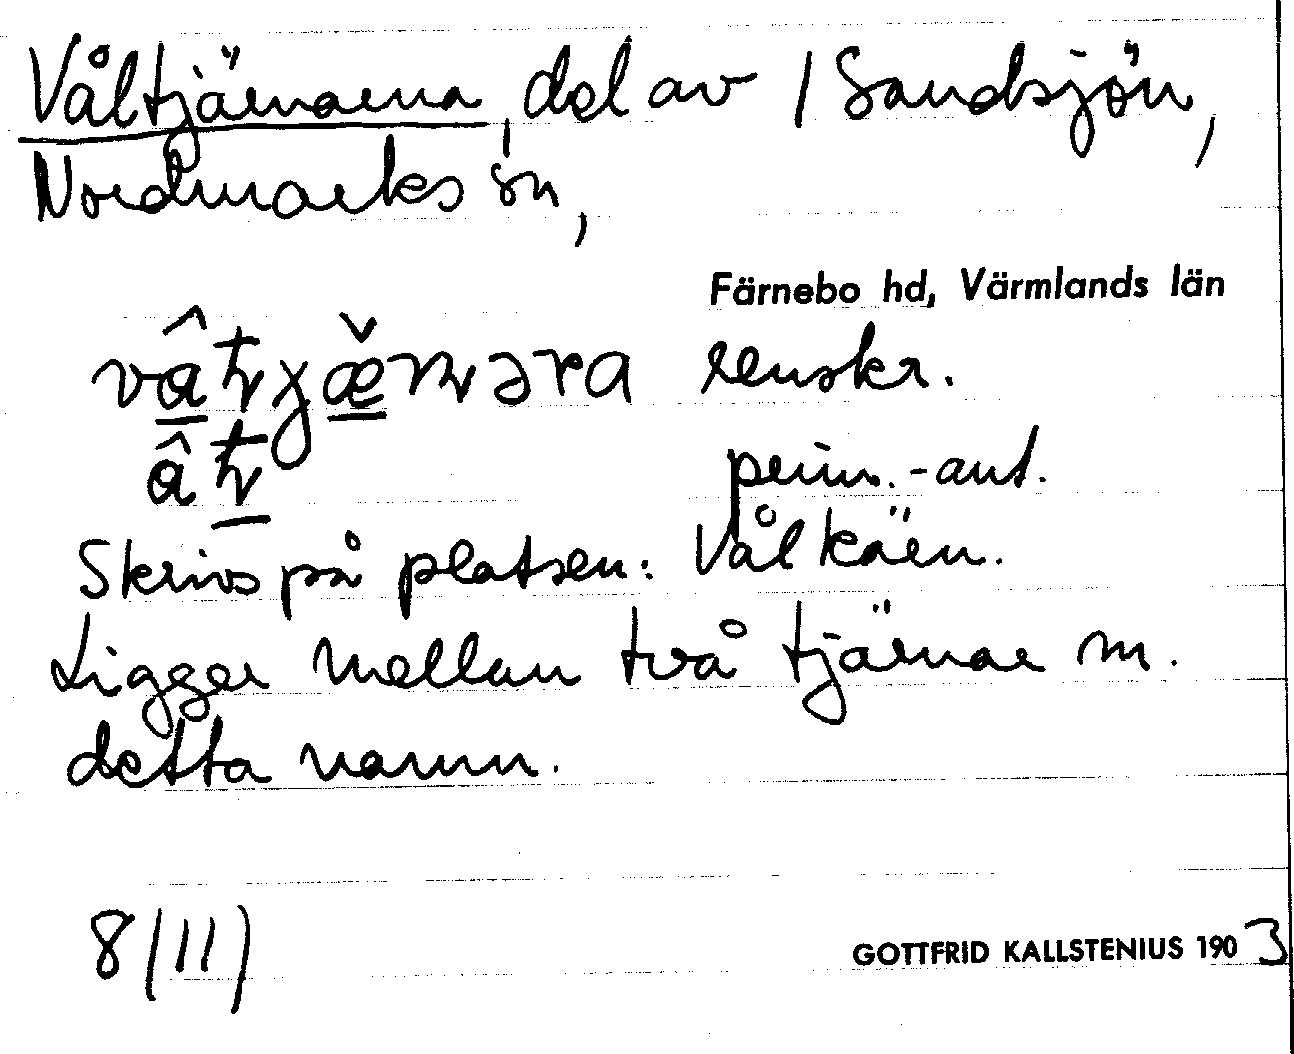 Våltjärnarna, del av / Sandsjön,
Nordmarks sn,
Färnebo hd, Värmlands län
renskr.
prim.-ant.
Skrivs på platsen: Vålkärn.
Ligger mellan två tjärnar m.
detta namn.
8/11)
GOTTFRID KALLSTENIUS 1903